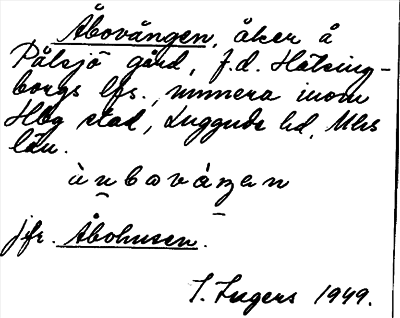 Åbovången, åker å
Pålsjö gård, f.d. Hälsing-
borgs lfs., numera inom
Hbg stad, Luggude hd, Mhs
län.
ùnbovàŋen
jfr. Åbohusen.
S. Ingers 1949.